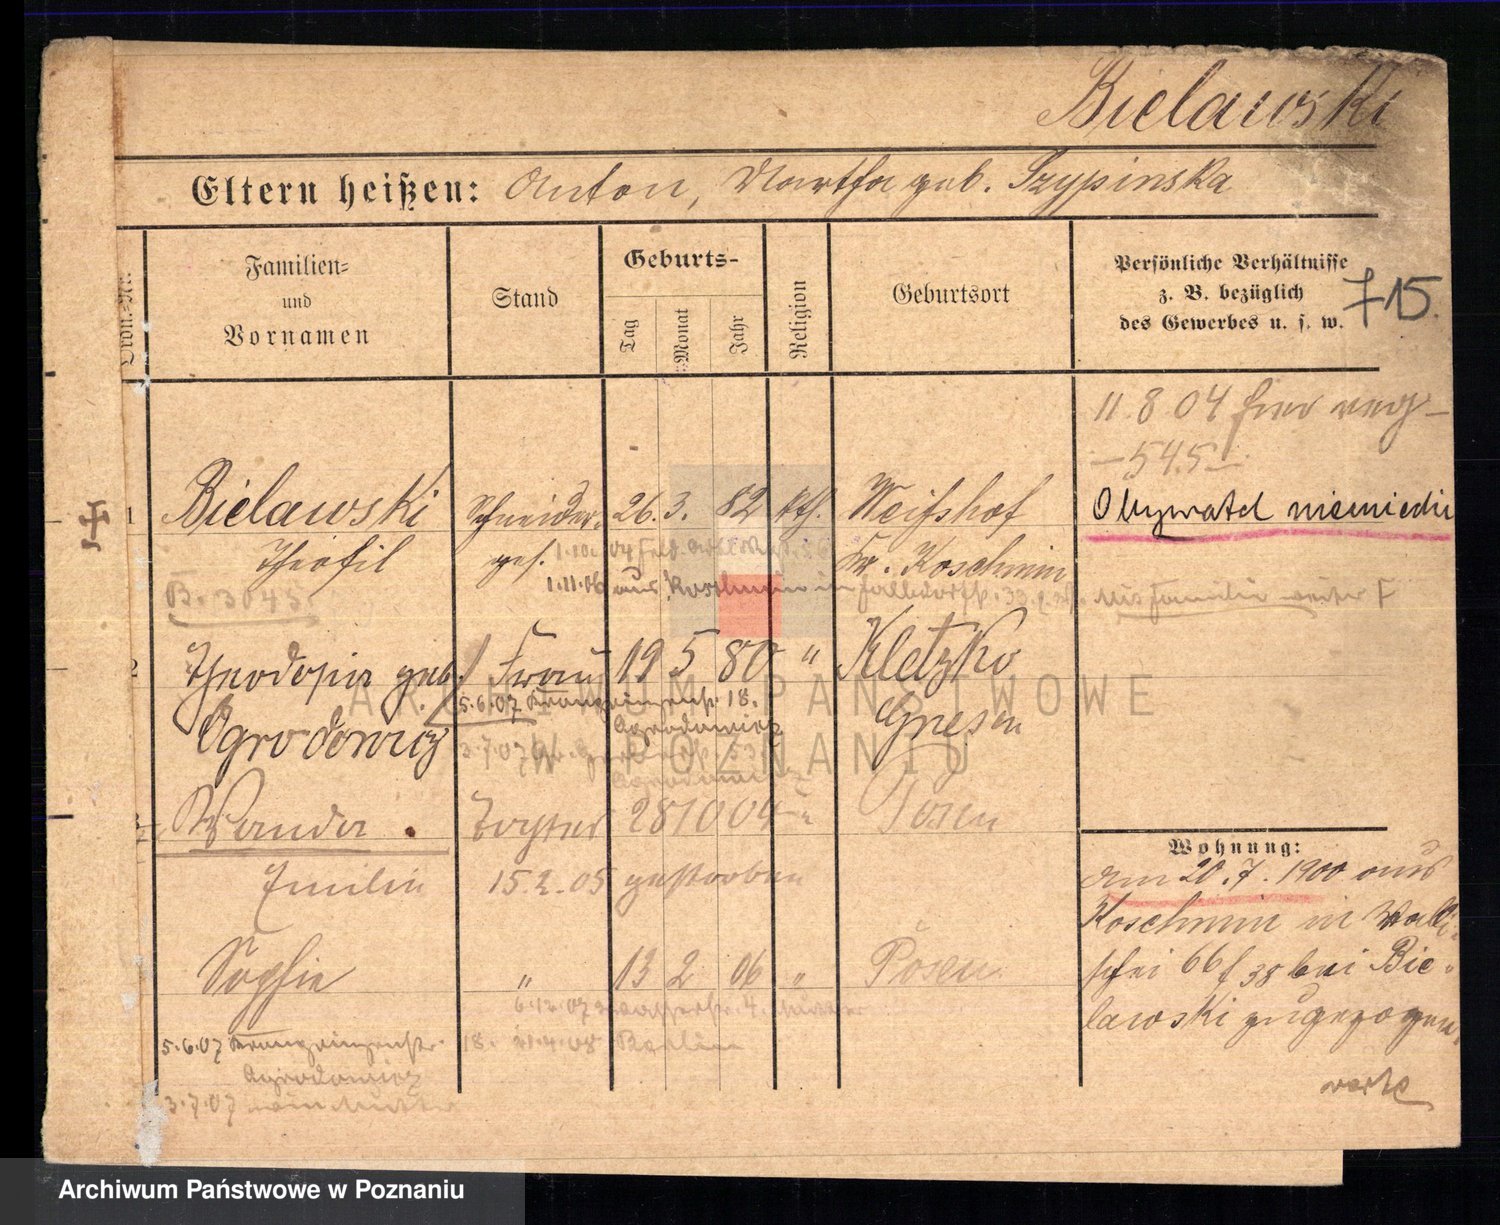 Bielawski
Eltern heißen: Anton, Martha geb. Szypinska
Ordn.-Nr.
Familien-
und
Vornamen
Stand
Geburts-
Tag
Monat
Jahr
Religion
Geburtsort
Persönliche Verhältnisse
z. B. bezüglich
des Gewerbes u. s. w.
715.
11.8.04 hier
-545-
1 Bielawski Schneider- 26. 3. 82 kth. Weißhof
Obywatel niemiecki
Theofil ges. Kr. Koschmin
1.10.04
1.11.06 aus Koschmin in
B. 3045.
2 Theodosia geb. Frau 19 5 80 " Kletzko
Ogrodowicz Gnesen
5.6.07 18.
Ogrodowicz
3.7.07
Wanda Tochter 28 10 04 " Posen
Emilie 15.2.05 gestorben
Sophie " 13 2 06 " Posen
6.12.07 4.
5.6.07 18. 21.4.08 Berlin
Ogrodowicz
3.7.07
Wohnung:
am 20.7.1900 aus
Koschmin in Walli-
schei 66 bei Bie-
lawski zugezogen
ARCHIWUM PAŃSTWOWE
W POZNANIU
Archiwum Państwowe w Poznaniu